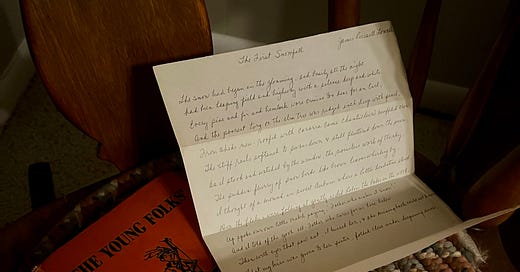 The First Snowfall
James Russell Lowell
The snow had begun in the gloaming, and busily all the night
had been heaping field and highway with a silence deep and white.
Every pine and fir and hemlock wore ermine too dear for an Earl,
And the poorest twig on the elm tree was ridged inch deep with pearl.
From sheds new roofed with Carrara Came Chanticleer's muffled crow
The stiff rails softened to swan's down & still fluttered down the snow
I stood and watched by the window the noiseless work of the sky
The sudden flurry of snow birds like brown leaves whirling by
I thought of a mound in sweet Auburn where a little headstone stood
How the flakes were folding it gently as did robins the babes in the wood
Up spoke our own little Mabel, saying, "Father who makes it snow?"
And I told of the good All Father who cares for us here below
Then with eyes that saw not, I kissed her, & she kissing back could not
That my kiss was given to her sister, folded close under deepening snow.
THE YOUNG FOLKS